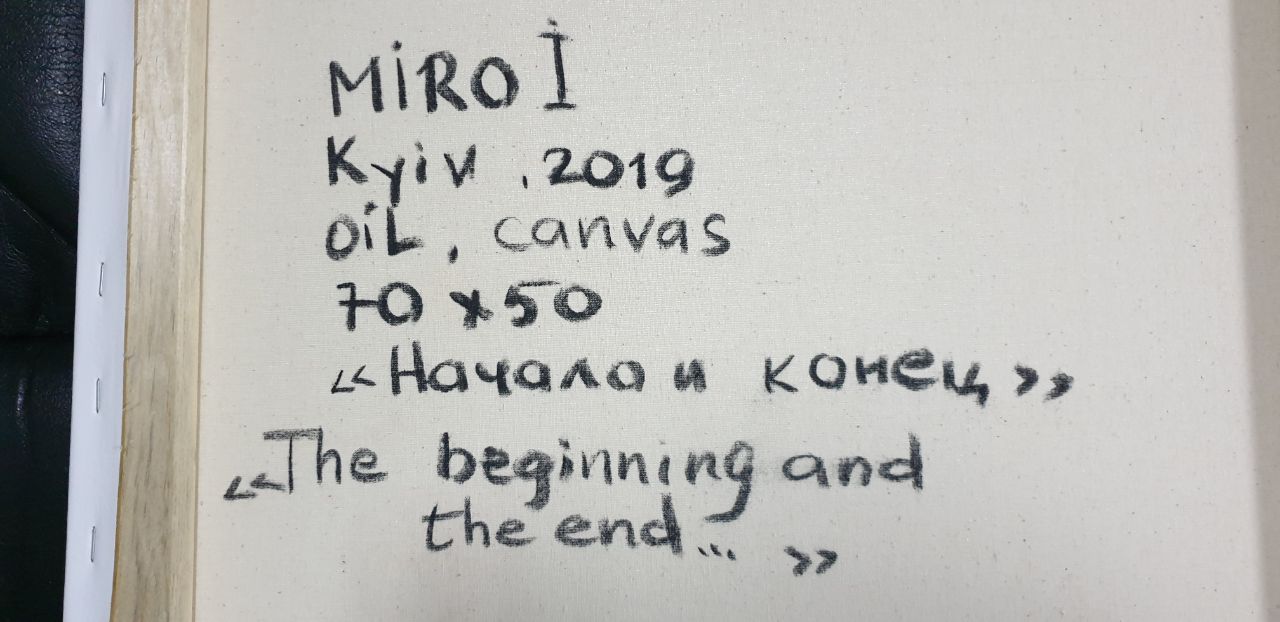 MiRO İ
Kyiv, 2019
oiL, canvas
70 x 50
«Начало и конец»
«The beginning and
the end... »